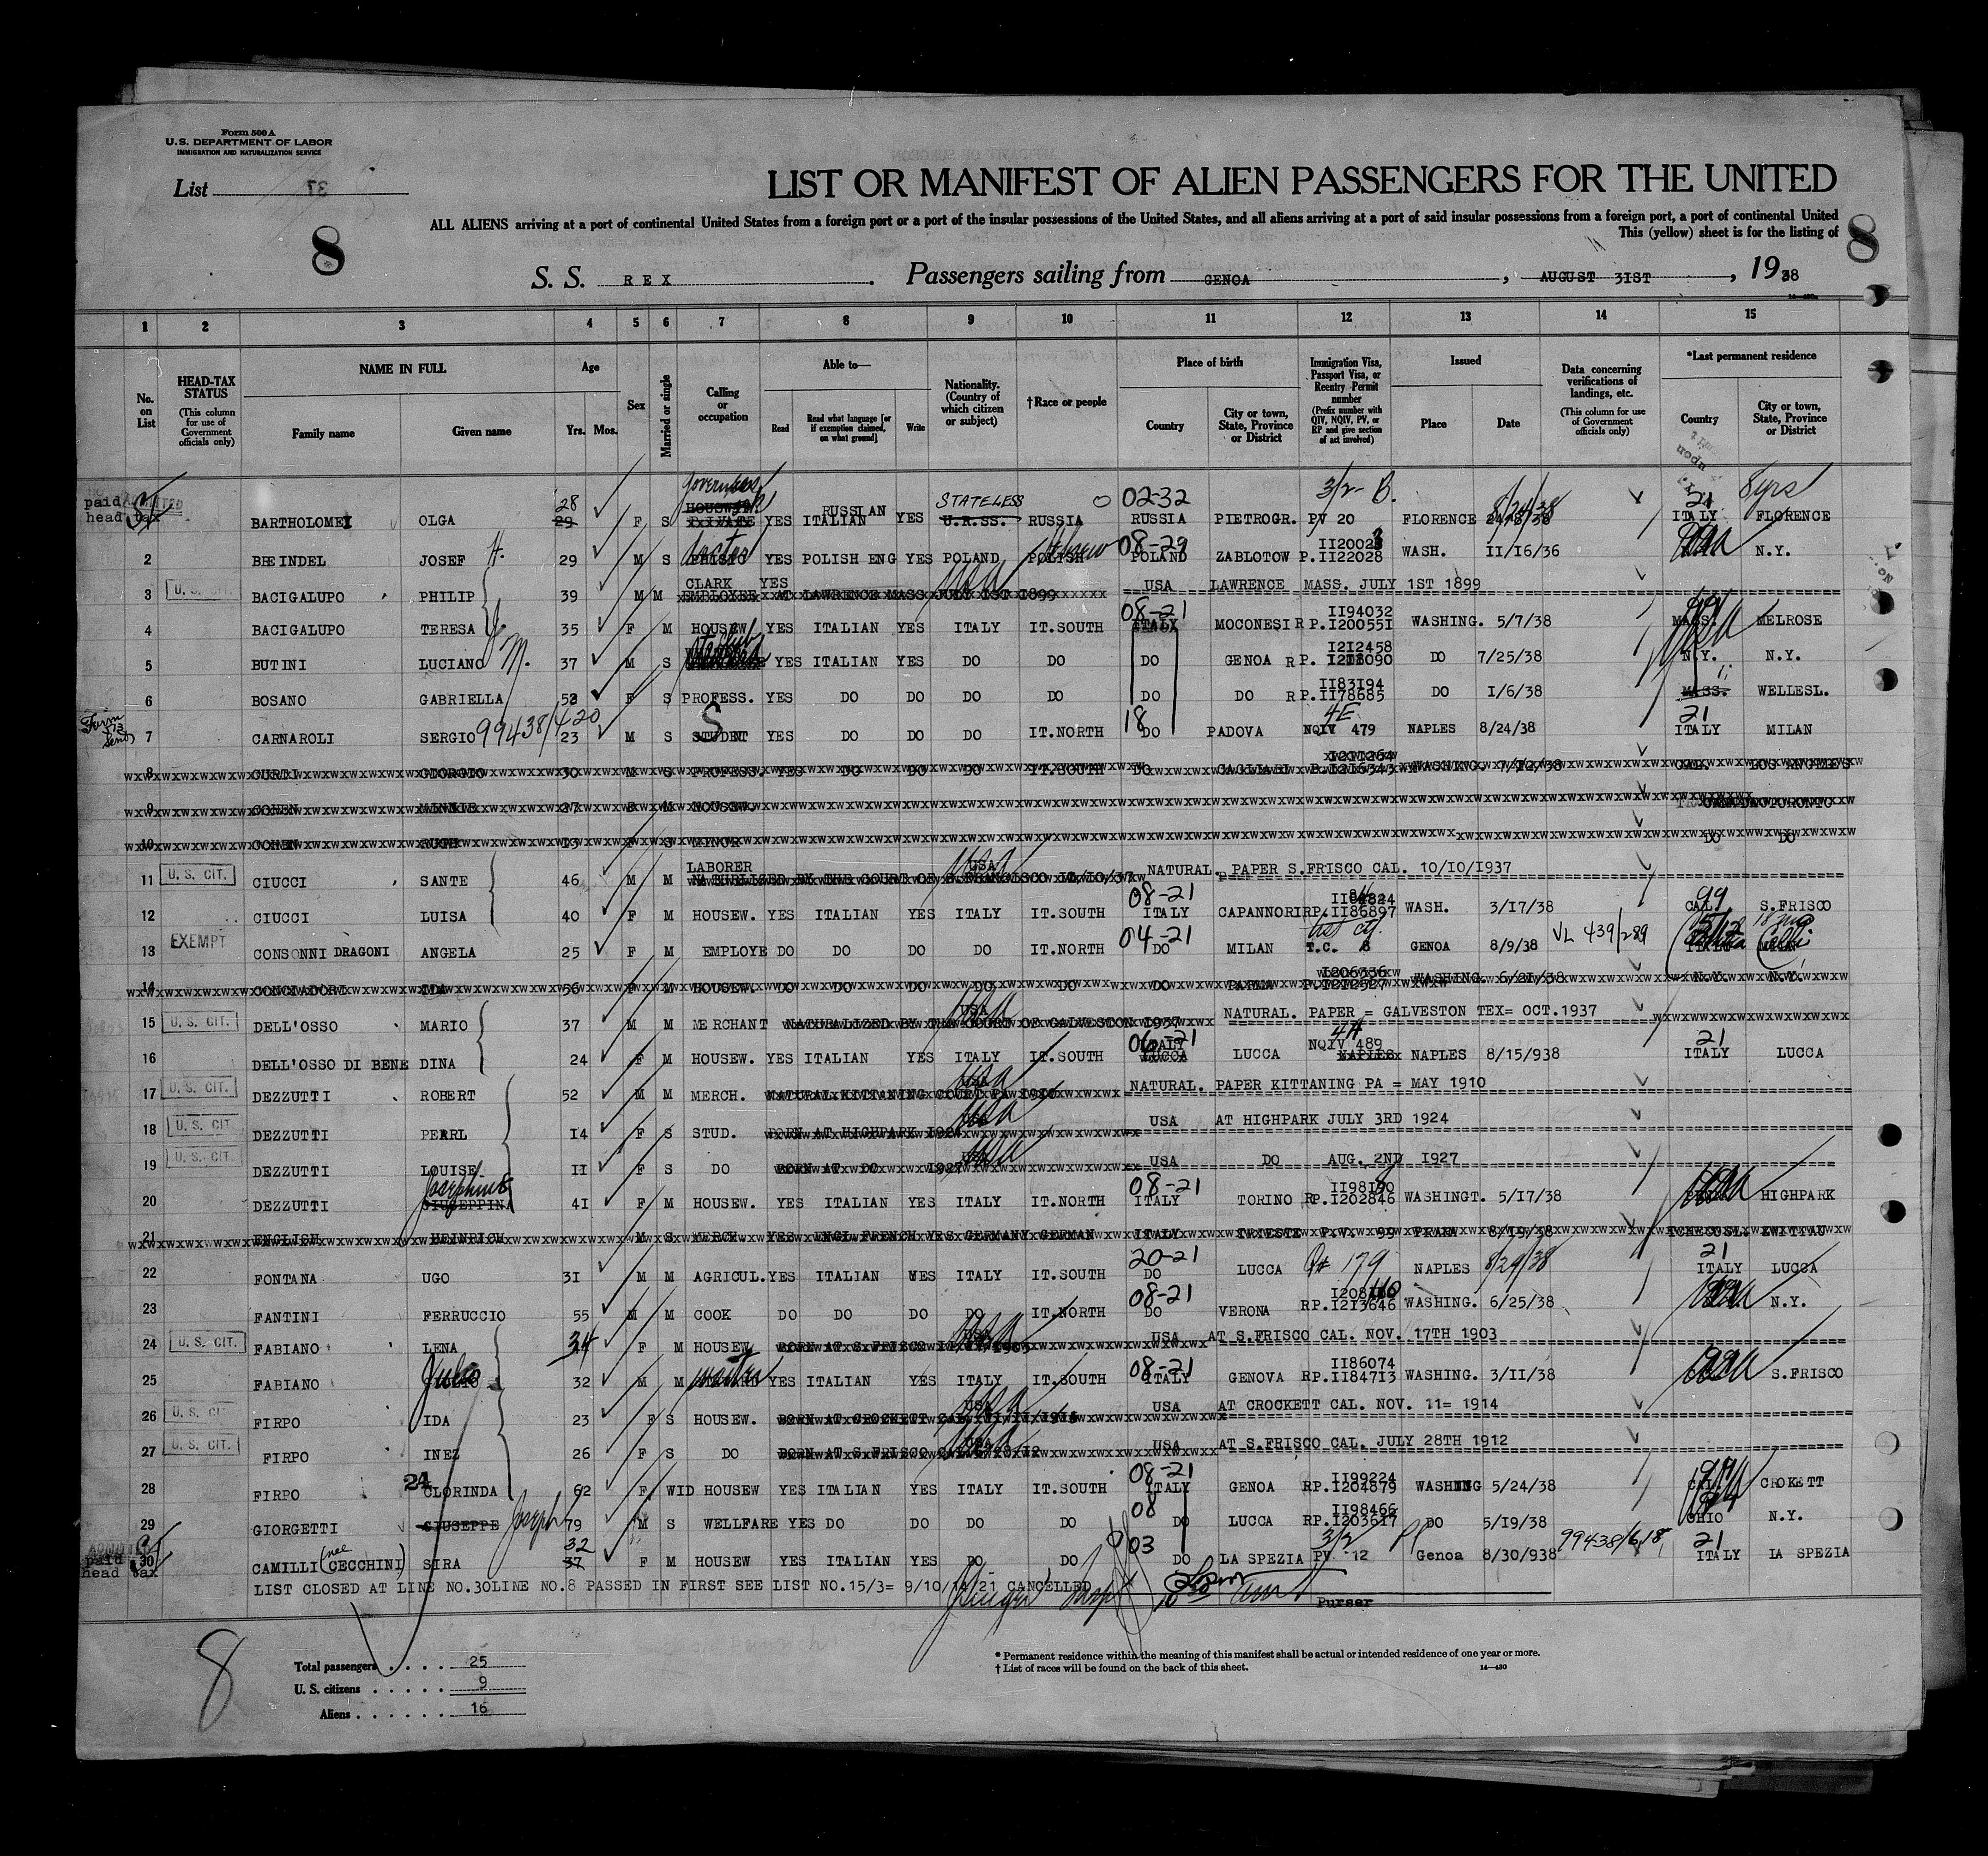 Form 500 A
U.S. DEPARTMENT OF LABOR
IMMIGRATION AND NATURALIZATION SERVICE
List 37
LIST OR MANIFEST OF ALIEN PASSENGERS FOR THE UNITED
ALL ALIENS arriving at a port of continental United States from a foreign port or a port of the insular possessions of the United States, and all aliens arriving at a port of said insular possessions from a foreign port, a port of continental United
This (yellow) sheet is for the listing of
8 8
S. S. REX. Passengers sailing from GENOA, AUGUST 31ST, 1938
1 2 3 4 5 6 7 8 9 10 11 12 13 14 15
No. on List
HEAD-TAX STATUS (This column for use of Government officials only)
NAME IN FULL Family name Given name
Age Yrs. Mos.
Sex
Married or single
Calling or occupation
Able to— Read Read what language [or if exemption claimed, on what ground] Write
Nationality. (Country of which citizen or subject)
†Race or people
Place of birth Country City or town, State, Province or District
Immigration Visa, Passport Visa, or Reentry Permit number (Prefix number with QIV, NQIV, PV, or RP and give section of act involved)
Issued Place Date
Data concerning verifications of landings, etc. (This column for use of Government officials only)
*Last permanent residence Country City or town, State, Province or District
paid head tax BARTHOLOMEI OLGA 28 29 F S Governess PRIVATE YES RUSSIAN ITALIAN YES STATELESS U.R.SS. RUSSIA 02-32 RUSSIA PIETROGR. 3/2- B. PV 20 FLORENCE 8/24/38 21 ITALY 8yrs FLORENCE
2 BREINDEL JOSEF H. 29 M S doctor YES POLISH ENG YES POLAND POLISH Hebrew 08-29 POLAND ZABLOTOW II20023 P.II22028 WASH. II/I6/36 N.Y.
3 U. S. CIT. BACIGALUPO PHILIP 39 M M CLARK YES EMPLOYEE AT LAWRENCE MASS JULY 1ST 1899 USA USA LAWRENCE MASS. JULY 1ST 1899
4 BACIGALUPO TERESA 35 F M HOUSEW. YES ITALIAN YES ITALY IT.SOUTH 08-21 ITALY MOCONESI II94032 R P.I200551 WASHING. 5/7/38 MASS. MELROSE
5 BUTINI LUCIANO M. 37 M S YES ITALIAN YES DO DO DO GENOA I2I2458 R P. DO 7/25/38 N.Y. N.Y.
6 BOSANO GABRIELLA 52 F S PROFESS. YES DO DO DO DO DO DO II83I94 R P.II78685 DO I/6/38 MASS. WELLESL.
7 CARNAROLI SERGIO 99438/420 23 M S S STUDNT YES DO DO DO IT.NORTH 18 DO PADOVA 4E NQIV 479 NAPLES 8/24/38 21 ITALY MILAN
8 CURTI GIORGIO 30 M S PROFESS. YES DO DO DO IT.SOUTH DO CAGLIARI I2II264 P.I2I6343 WASHING. 7/12/38 CAL. LOS ANGELES
9 COHEN MINNIE 27 F M HOUSEW. TORONTO
10 COHEN RUTH 13 F S MINOR DO DO
11 U. S. CIT. CIUCCI SANTE 46 M M LABORER NATURLISED BY THE COURT OF S.FRANCISCO IO/IO/37 USA NATURAL. PAPER S.FRISCO CAL. 10/10/1937
12 CIUCCI LUISA 40 F M HOUSEW. YES ITALIAN YES ITALY IT.SOUTH 08-21 ITALY CAPANNORI RP.II86897 WASH. 3/17/38 99 CAL. S.FRISCO
13 EXEMPT CONSONNI DRAGONI ANGELA 25 F M EMPLOYE DO DO DO DO IT.NORTH 04-21 DO MILAN T.C. 8 GENOA 8/9/38 VL 439/289 ITALY
14 CONCIADORI IDA 56 F M HOUSEW. DO DO DO DO DO DO PARMA I206336 P.I2I2527 WASHING. 6/21/38 N.Y. N.Y.
15 U. S. CIT. DELL'OSSO MARIO 37 M M MERCHANT NATURALIZED BY THE COURT OF GALVESTON 1937 USA NATURAL. PAPER = GALVESTON TEX= OCT.1937
16 DELL'OSSO DI BENE DINA 24 F M HOUSEW. YES ITALIAN YES ITALY IT.SOUTH 06-21 ITALY LUCCA LUCCA 4A NQIV 489 NAPLES NAPLES 8/15/938 21 ITALY LUCCA
17 U. S. CIT. DEZZUTTI ROBERT 52 M M MERCH. NATURAL KITTANING COURT PA I9I0 USA NATURAL. PAPER KITTANING PA = MAY 1910
18 U. S. CIT. DEZZUTTI PEARL I4 F S STUD. BORN AT HIGHPARK 1924 USA USA AT HIGHPARK JULY 3RD 1924
19 U. S. CIT. DEZZUTTI LOUISE II F S DO BORN AT DO 1927 USA USA DO AUG. 2ND I927
20 DEZZUTTI Josephine GIUSEPPINA 4I F M HOUSEW. YES ITALIAN YES ITALY IT.NORTH 08-21 ITALY TORINO RP.I202846 WASHINGT. 5/17/38 HIGHPARK
21 ENGLISH HEINRICH M S MERCH. YES ENGL FRENCH YES GERMANY GERMAN ITALY TRIESTE P.V. 99 PRAHA 8/19/38 TCHECOSL. ZWITTAU
22 FONTANA UGO 3I M M AGRICUL. YES ITALIAN YES ITALY IT.SOUTH 20-21 DO LUCCA 179 NAPLES 8/29/38 21 ITALY LUCCA
23 FANTINI FERRUCCIO 55 M M COOK DO DO DO DO IT.NORTH 08-21 DO VERONA RP.I2I3646 WASHING. 6/25/38 N.Y.
24 U. S. CIT. FABIANO LENA 34 F M HOUSEW BORN AT S.FRISCO USA USA AT S.FRISCO CAL. NOV. 17TH 1903
25 FABIANO Julio 32 M M waiter YES ITALIAN YES ITALY IT.SOUTH 08-21 ITALY GENOVA II86074 RP.II84713 WASHING. 3/11/38 S.FRISCO
26 U. S. CIT. FIRPO IDA 23 F S HOUSEW. BORN AT CROCKETT CAL. USA USA AT CROCKETT CAL. NOV. 11= 1914
27 U. S. CIT. FIRPO INEZ 26 F S DO BORN AT S.FRISCO CAL. USA USA AT S.FRISCO CAL. JULY 28TH 1912
28 FIRPO CLORINDA 62 F WID HOUSEW YES ITALIAN YES ITALY IT.SOUTH 08-21 ITALY GENOA II99224 RP.I204879 WASHING 5/24/38 CAL. CROKETT
29 GIORGETTI GIUSEPPE Joseph 79 M S WELLFARE YES DO DO DO DO 08 DO LUCCA II98466 RP.I203617 DO 5/19/38 OHIO N.Y.
paid head tax 30 CAMILLI (nee CECCHINI) SIRA 32 37 F M HOUSEW YES ITALIAN YES DO DO 03 DO LA SPEZIA 3/2 PV 12 Genoa 8/30/938 99438/618 21 ITALY LA SPEZIA
LIST CLOSED AT LINE NO.30LINE NO.8 PASSED IN FIRST SEE LIST NO.15/3= 9/10/14/21 CANCELLED
Purser
8
Total passengers 25
U. S. citizens 9
Aliens 16
* Permanent residence within the meaning of this manifest shall be actual or intended residence of one year or more.
† List of races will be found on the back of this sheet. 14—430